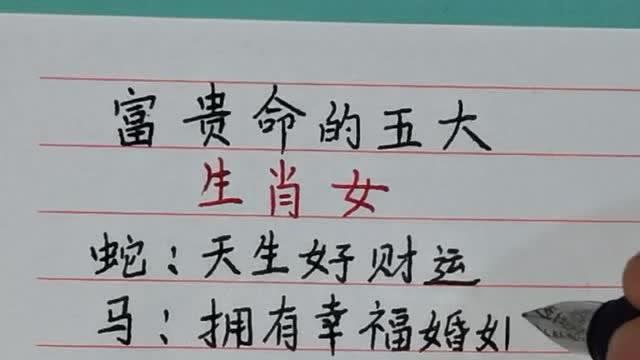 富贵命的五大
生肖女
蛇：天生好财运
马：拥有幸福婚